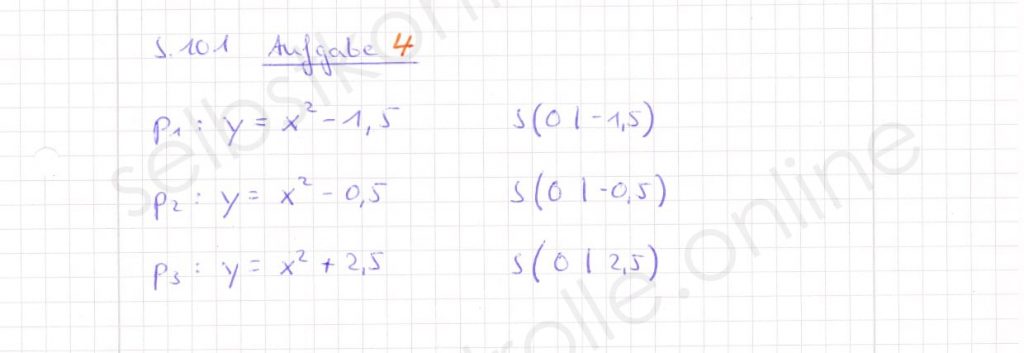 S. 101 Aufgabe 4
p₁ : y = x² - 1,5 S(0 | -1,5)
p₂ : y = x² - 0,5 S(0 | -0,5)
p₃ : y = x² + 2,5 S(0 | 2,5)
selbstkontrolle.online